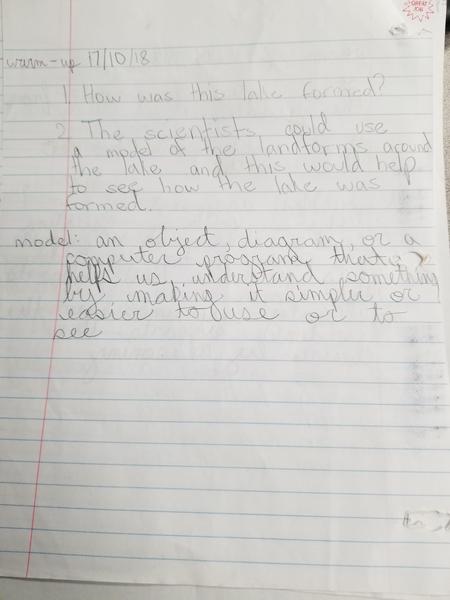 GREAT JOB
warm-up 17/10/18
1. How was this lake formed?
2. The scientists could use
a model of the landforms around
the lake and this would help
to see how the lake was
formed.
model: an object, diagram, or a
computer program that
helps us understand something
by making it simpler or
easier to use or to
see